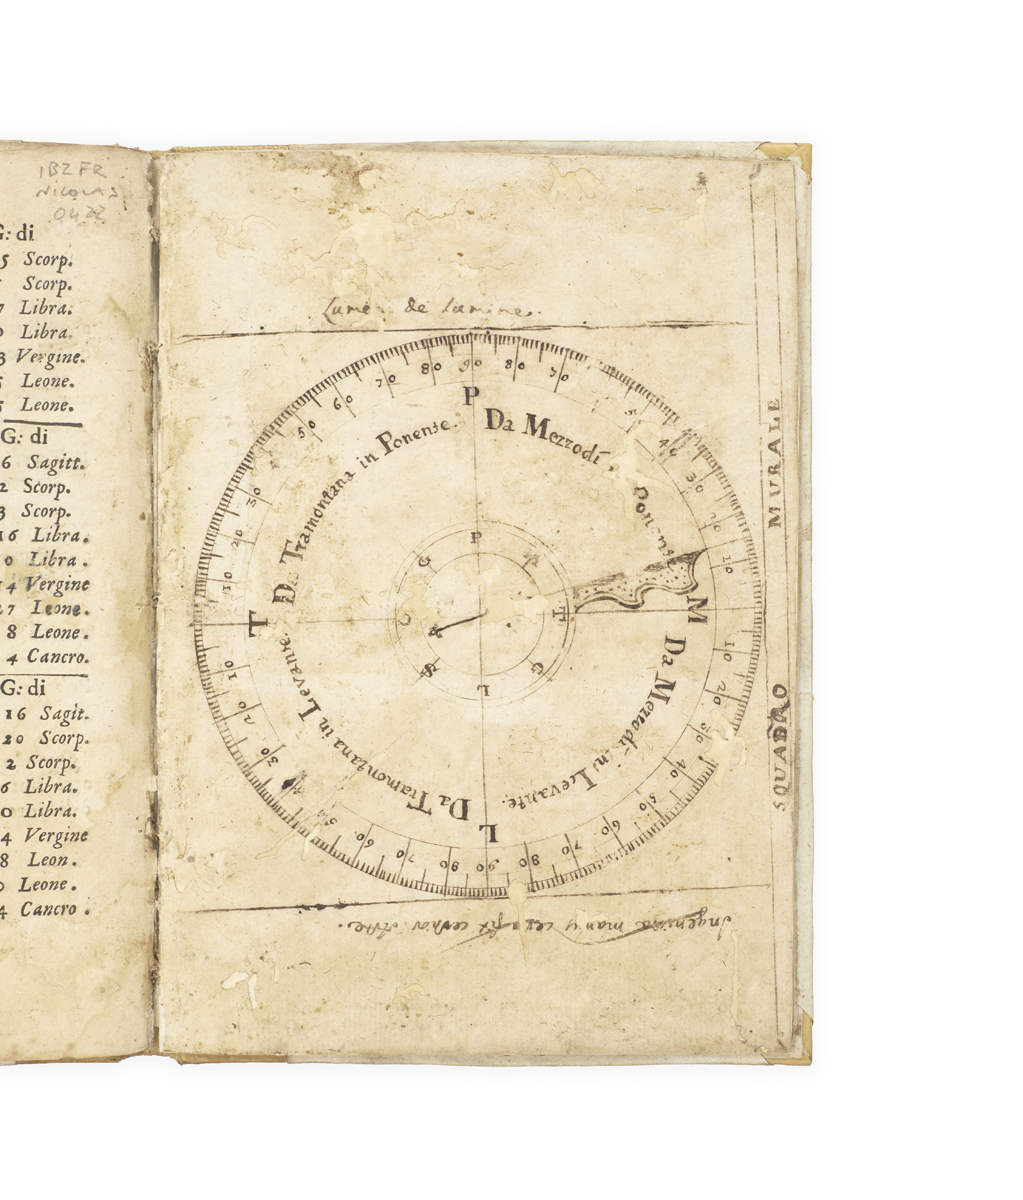 IBZ FR
NICOLAS
0422
G: di
5 Scorp.
Scorp.
7 Libra.
0 Libra.
3 Vergine.
5 Leone.
5 Leone.
G: di
6 Sagitt.
2 Scorp.
3 Scorp.
16 Libra.
0 Libra.
14 Vergine
27 Leone.
8 Leone.
4 Cancro.
G: di
16 Sagit.
20 Scorp.
2 Scorp.
6 Libra.
0 Libra.
4 Vergine
8 Leon.
0 Leone.
4 Cancro.
Lume de lumine.
50 60 70 80 90 80 70
40 30 20 10
10 20 30 40 50 60 70 80 90
90 80 70 60 50
30 20 10
10 20 30
P
Da Mezzodi
Ponente
M
Da Mezzodi in Levante.
L
Da Tramontana in Levante.
T
Da Tramontana in Ponente.
P
T
G
L
S
G
SQUADRO MURALE